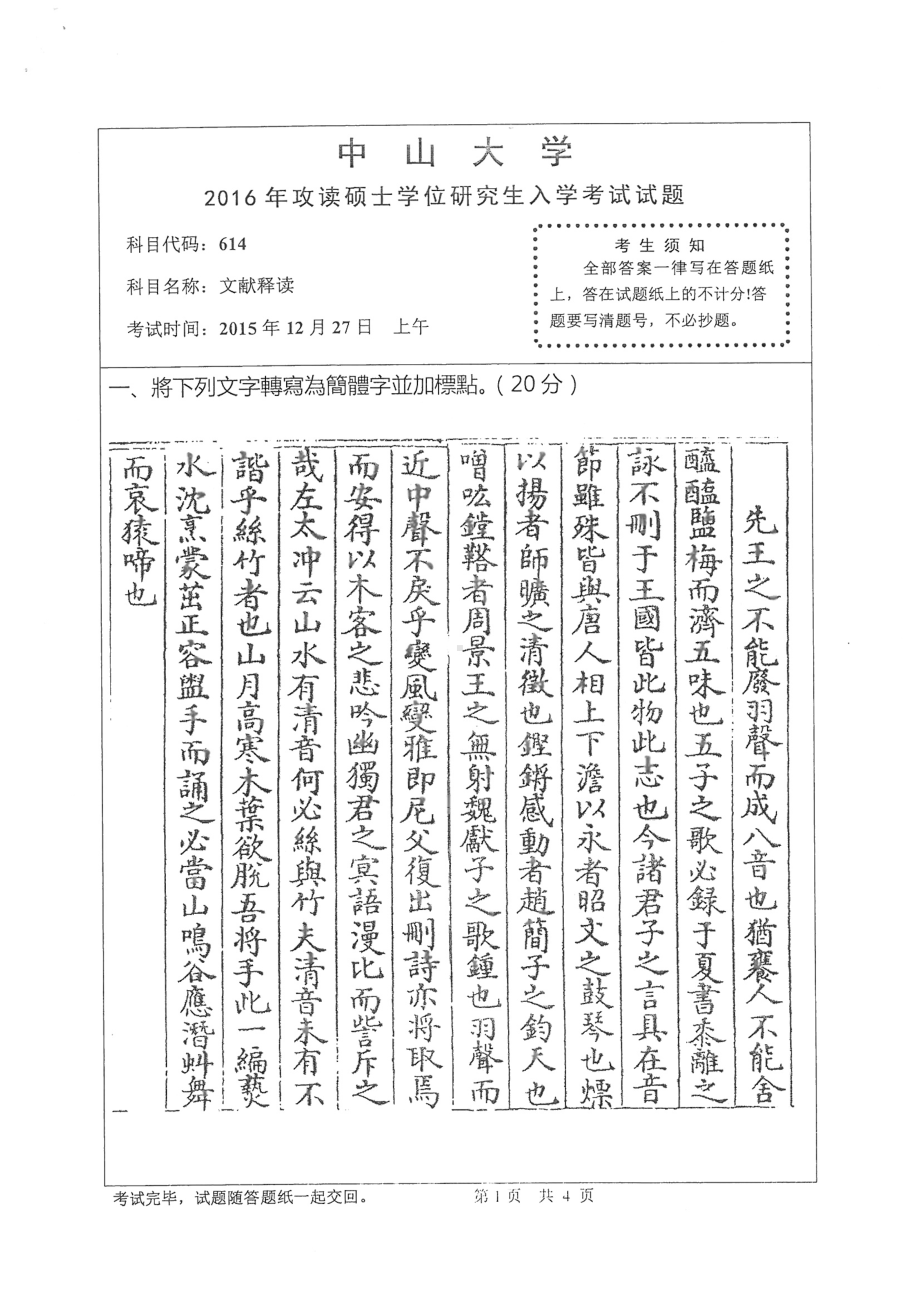 中山大学
2016年攻读硕士学位研究生入学考试试题
科目代码：614
科目名称：文献释读
考试时间：2015年12月27日 上午
考生须知
全部答案一律写在答题纸
上，答在试题纸上的不计分!答
题要写清题号，不必抄题。
一、將下列文字轉寫為簡體字並加標點。（20分）
先王之不能廢羽聲而成八音也猶饔人不能舍
醯醢鹽梅而濟五味也五子之歌必録于夏書黍離之
詠不刪于王國皆此物此志也今諸君子之言具在音
節雖殊皆與唐人相上下澹以永者昭文之鼓琴也熛
以揚者師曠之清徵也鏗鏘感動者趙簡子之鈞天也
噌吰鏜鞳者周景王之無射魏獻子之歌鍾也羽聲而
近中聲不戾乎變風變雅即尼父復出刪詩亦将取焉
而安得以木客之悲吟幽獨君之冥語漫比而訾斥之
哉左太冲云山水有清音何必絲與竹夫清音未有不
諧乎絲竹者也山月高寒木葉欲脫吾将手此一編爇
水沈烹蒙茁正容盥手而誦之必當山鳴谷應潛虯舞
而哀猿啼也
考试完毕，试题随答题纸一起交回。 第1页 共4页